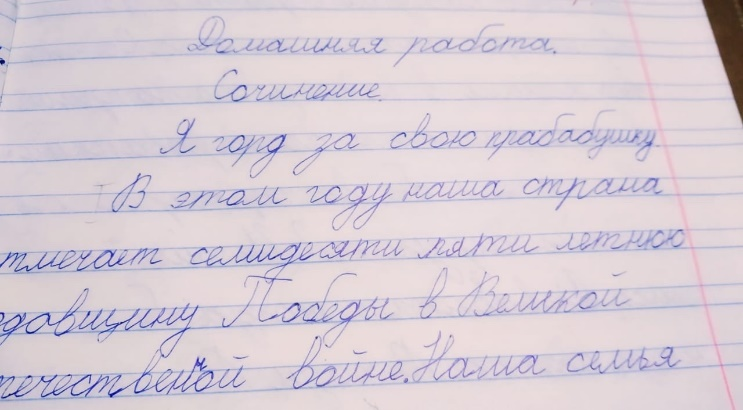 Домашняя работа.
Сочинение.
Я горд за свою прабабушку.
В этом году наша страна
тмечает семидесяти пяти летнюю
довщину Победы в Великой
течественной войне. Наша семья